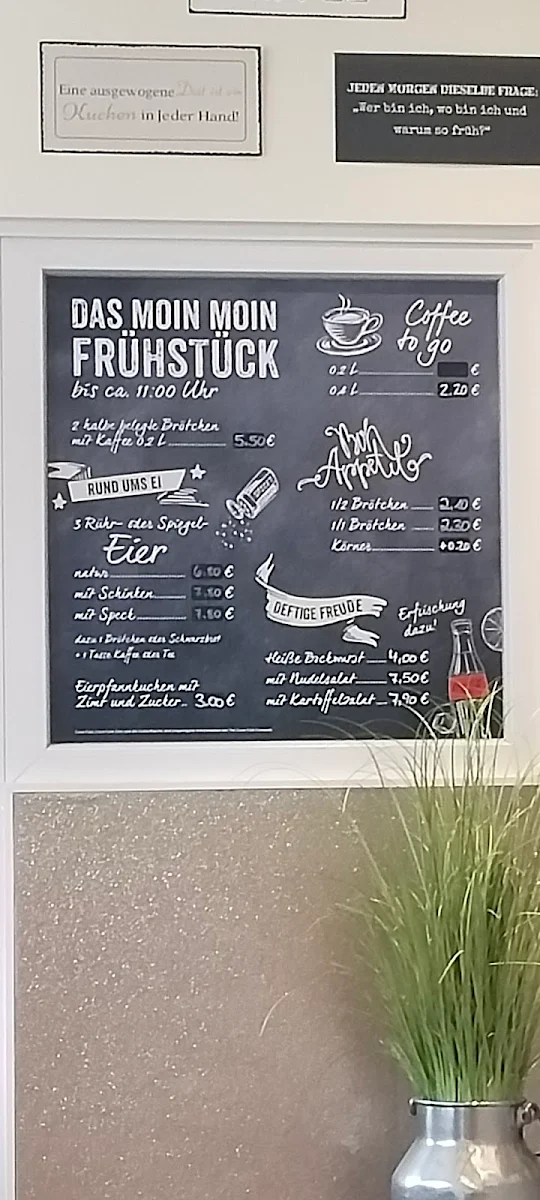 Eine ausgewogene Diät ist ein
Kuchen in jeder Hand!
JEDEN MORGEN DIESELBE FRAGE:
„Wer bin ich, wo bin ich und
warum so früh?“
DAS MOIN MOIN
FRÜHSTÜCK
bis ca. 11:00 Uhr
2 halbe belegte Brötchen
mit Kaffee 0,2 L 5.50 €
RUND UMS EI
3 Rühr- oder Spiegel-
Eier
natur 6.50 €
mit Schinken 7.50 €
mit Speck 7.50 €
dazu 1 Brötchen oder Schwarzbrot
+ 1 Tasse Kaffee oder Tee
Eierpfannkuchen mit
Zimt und Zucker 3.00 €
Coffee
to go
0,2 L €
0,4 L 2.20 €
Bon
Appetit
1/2 Brötchen €
1/1 Brötchen €
Körner +0.20 €
DEFTIGE FREUDE
Erfrischung
dazu!
Heiße Bockwurst 4,00 €
mit Nudelsalat 7,50 €
mit Kartoffelsalat 7,90 €